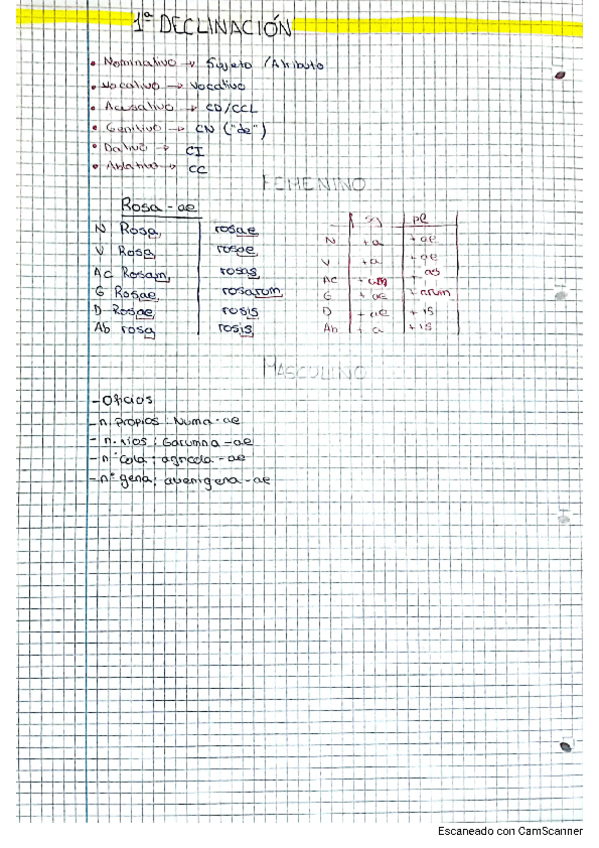 1ª DECLINACIÓN
• Nominativo → Sujeto / Atributo
• Vocativo → Vocativo
• Acusativo → CD/CCL
• Genitivo → CN ("de")
• Dativo → CI
• Ablativo → CC
FEMENINO
Rosa - ae
N Rosa rosae
V Rosa rosae
AC Rosam rosas
G Rosae rosarum
D Rosae rosis
Ab rosa rosis
sg pl
N +a +ae
V +a +ae
AC +am +as
G +ae +arum
D +ae +is
Ab +a +is
MASCULINO
- Oficios
- n. propios: Numa - ae
- n. ríos: Garumna - ae
- nº cola: agricola - ae
- nº gena: avenigena - ae
Escaneado con CamScanner